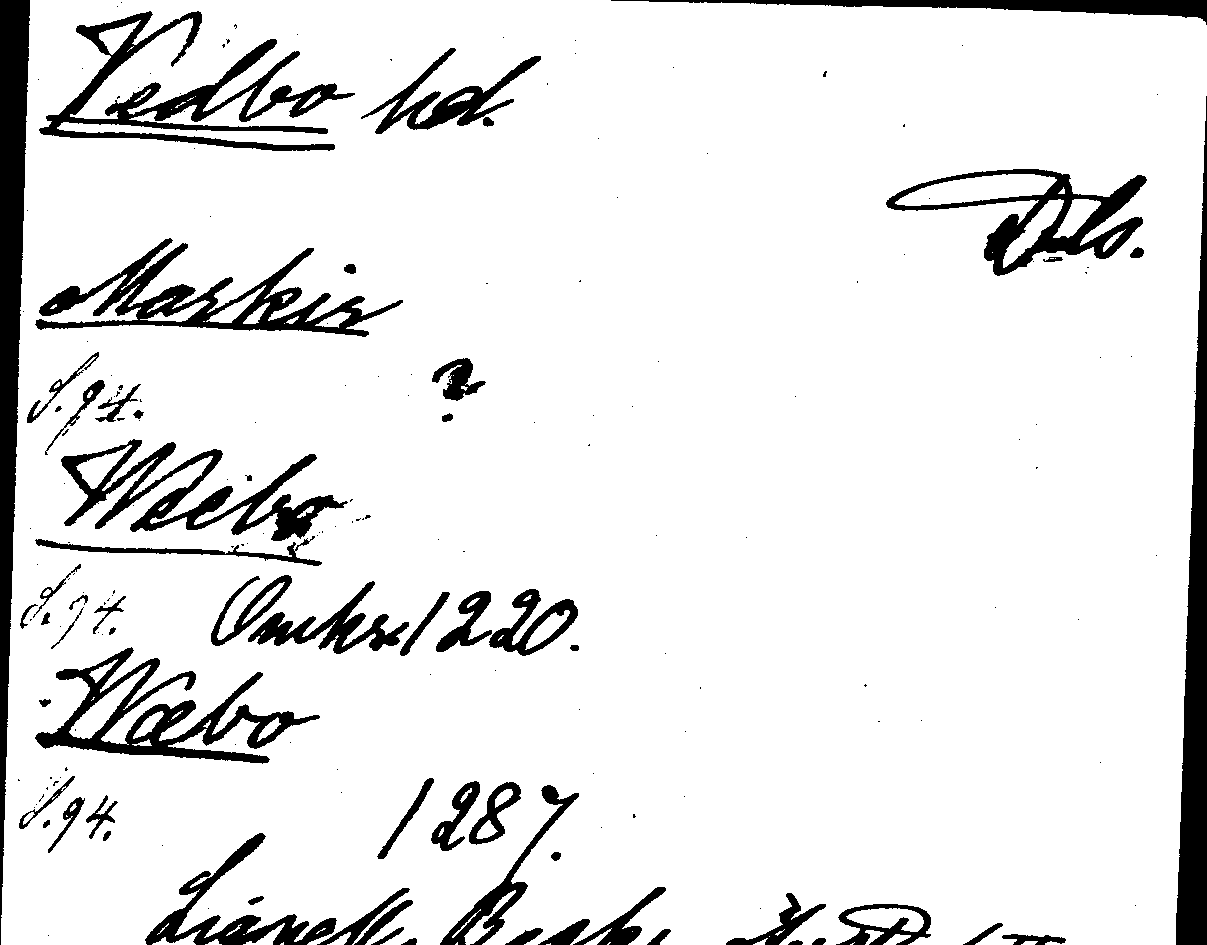 Vedbo hd.
Dls.
Markir
S. 94. ?
Wæbo
S. 94. Omkr. 1220.
Wæbo
S. 94. 1287.
Lignell, Beskr.